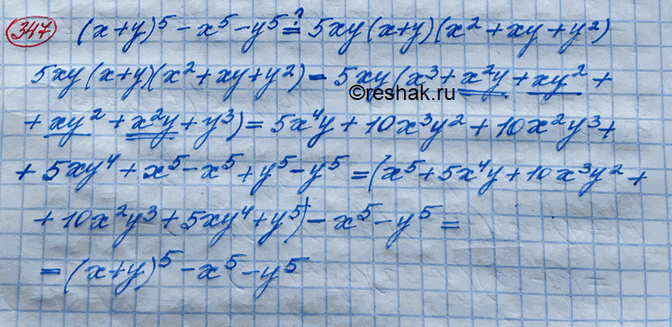 347 (x+y)⁵ - x⁵ - y⁵ ?= 5xy(x+y)(x²+xy+y²)
5xy(x+y)(x²+xy+y²) = 5xy(x³+x²y+xy²+
©reshak.ru
+xy²+x²y+y³) = 5x⁴y+10x³y²+10x²y³+
+5xy⁴+x⁵-x⁵+y⁵-y⁵=(x⁵+5x⁴y+10x³y²+
+10x²y³+5xy⁴+y⁵)-x⁵-y⁵=
=(x+y)⁵-x⁵-y⁵